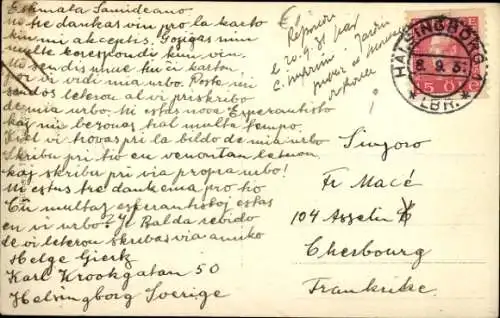 Estimata Samideano.
mi tre dankas vin pro la karto
kiun mi akceptis. Gojigas min
multe korespondi kun vin.
Mi sendis unue ĉi karton,
por vi vidi mia urbo. Poste mi
sendos leteron al vi priskribo
de mia urbo. Mi estas nova Esperantisto
kaj mi bezonas hal multa tempo.
Kiel vi trovas pri la bildo de mia urbo
Skribu pri tio en venontan leteron,
kaj skribu pri via propra urbo!
Mi estus tre dankema pro tio
Ĉu multaj esperantistoj estas
en vi urbo? Je Balda revido
de vi leteron skribas via amiko
Helge Giertz
Karl Krookgatan 50
Helsingborg Sverige
Répondu
le 20.9.31 par
C. marine. Jardin
public et
HÄLSINGBORG 1
8.9.31
LBR.
50
Sinjoro
Fr Macé
104 Asselin
Cherbourg
Frankrike